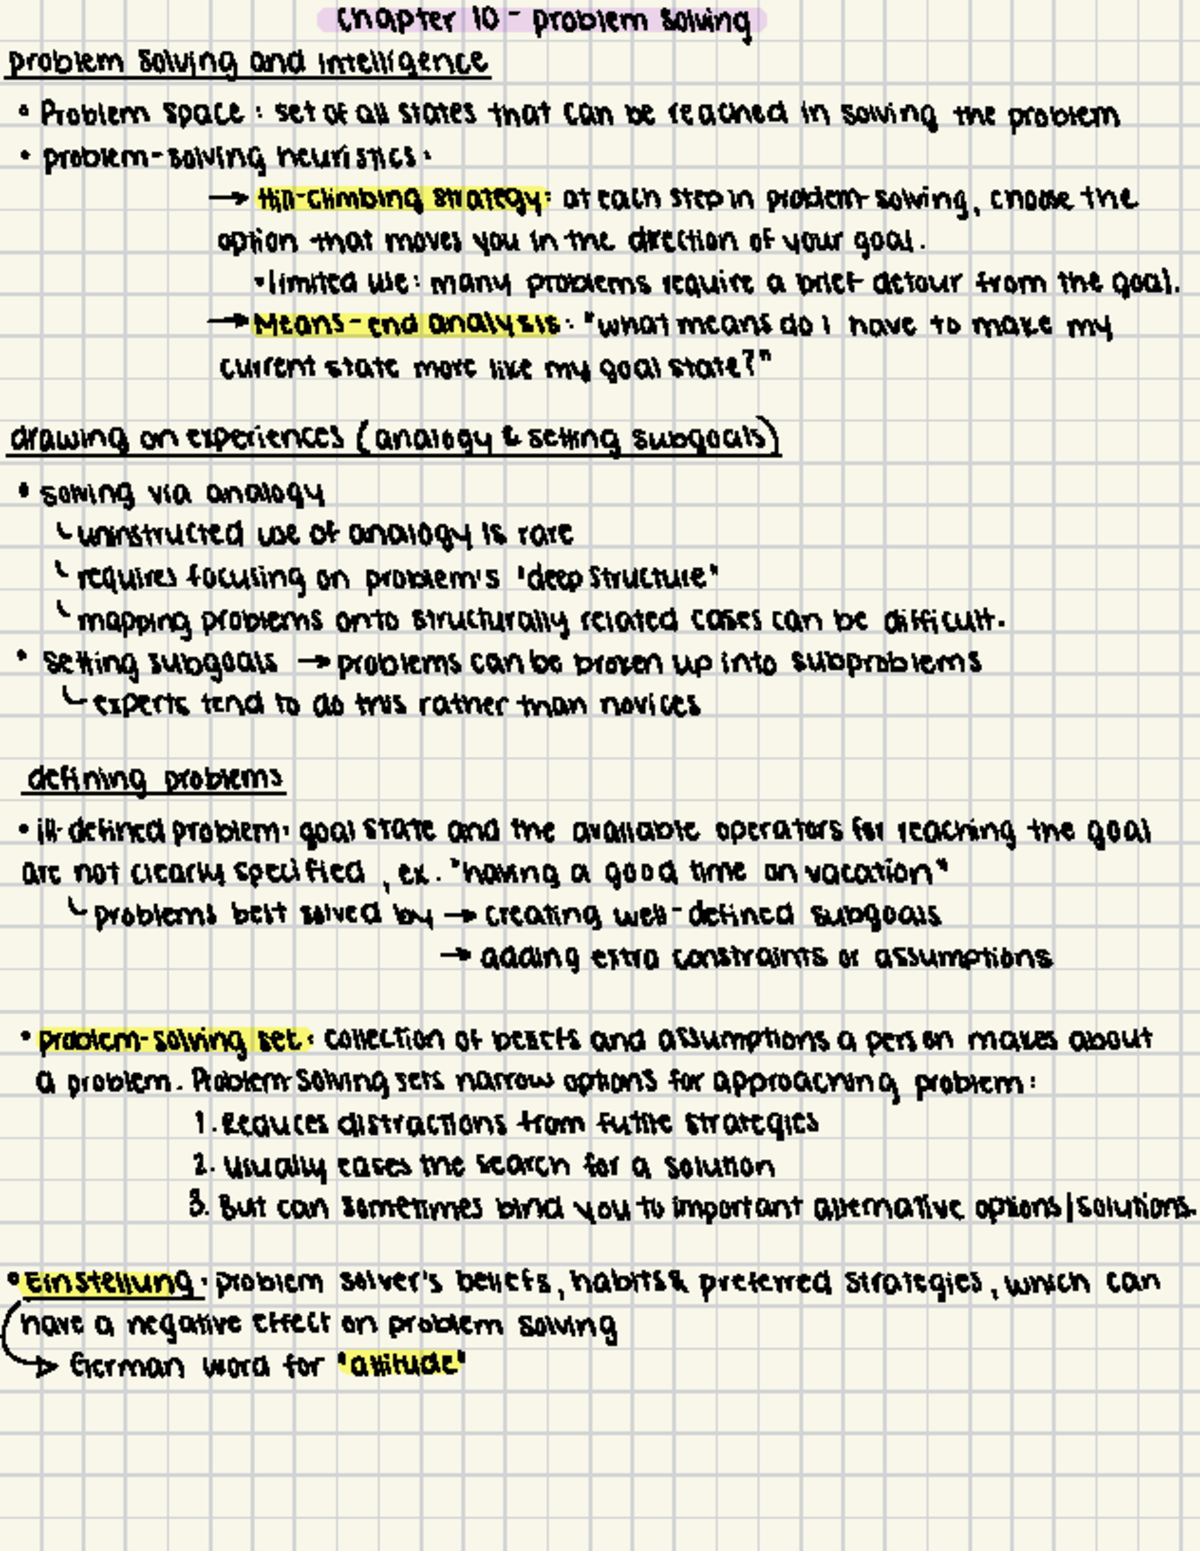 Chapter 10 - problem solving
problem solving and intelligence
• Problem space : set of all states that can be reached in solving the problem
• problem-solving heuristics:
→ Hill-climbing strategy: at each step in problem-solving, choose the
option that moves you in the direction of your goal.
•limited use: many problems require a brief detour from the goal.
→ Means-end analysis: "what means do I have to make my
current state more like my goal state?"
drawing on experiences (analogy & setting subgoals)
• solving via analogy
└ uninstructed use of analogy is rare
└ requires focusing on problem's "deep structure"
└ mapping problems onto structurally related cases can be difficult.
• setting subgoals → problems can be broken up into subproblems
└ experts tend to do this rather than novices
defining problems
• ill-defined problem: goal state and the available operators for reaching the goal
are not clearly specified, ex. "having a good time on vacation"
└ problems best solved by → creating well-defined subgoals
→ adding extra constraints or assumptions
• problem-solving set: collection of beliefs and assumptions a person makes about
a problem. Problem-Solving sets narrow options for approaching problem:
1. Reduces distractions from futile strategies
2. Usually eases the search for a solution
3. But can sometimes bind you to important alternative options/solutions.
• Einstellung: problem solver's beliefs, habits & preferred strategies, which can
have a negative effect on problem solving
→ German word for "attitude"